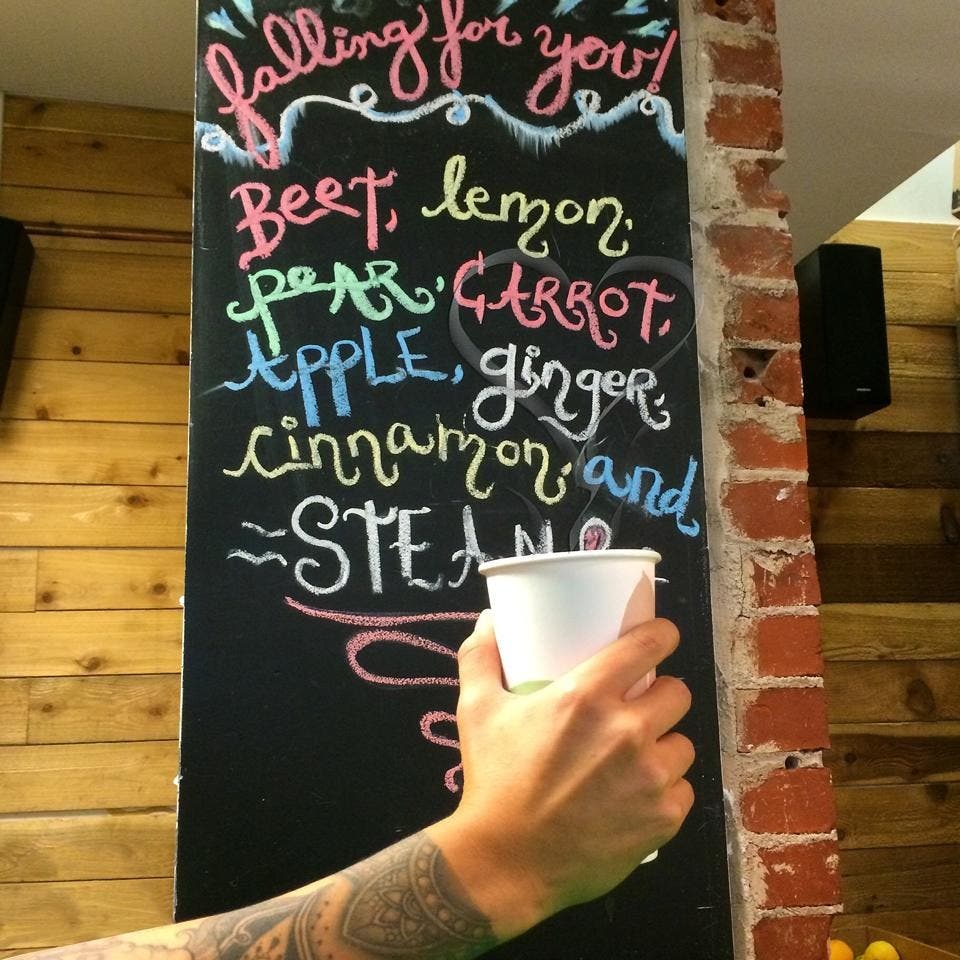 falling for you!
Beet, lemon,
peAR, CARROT,
APPLE, ginger,
cinnamon, and
~STEAM